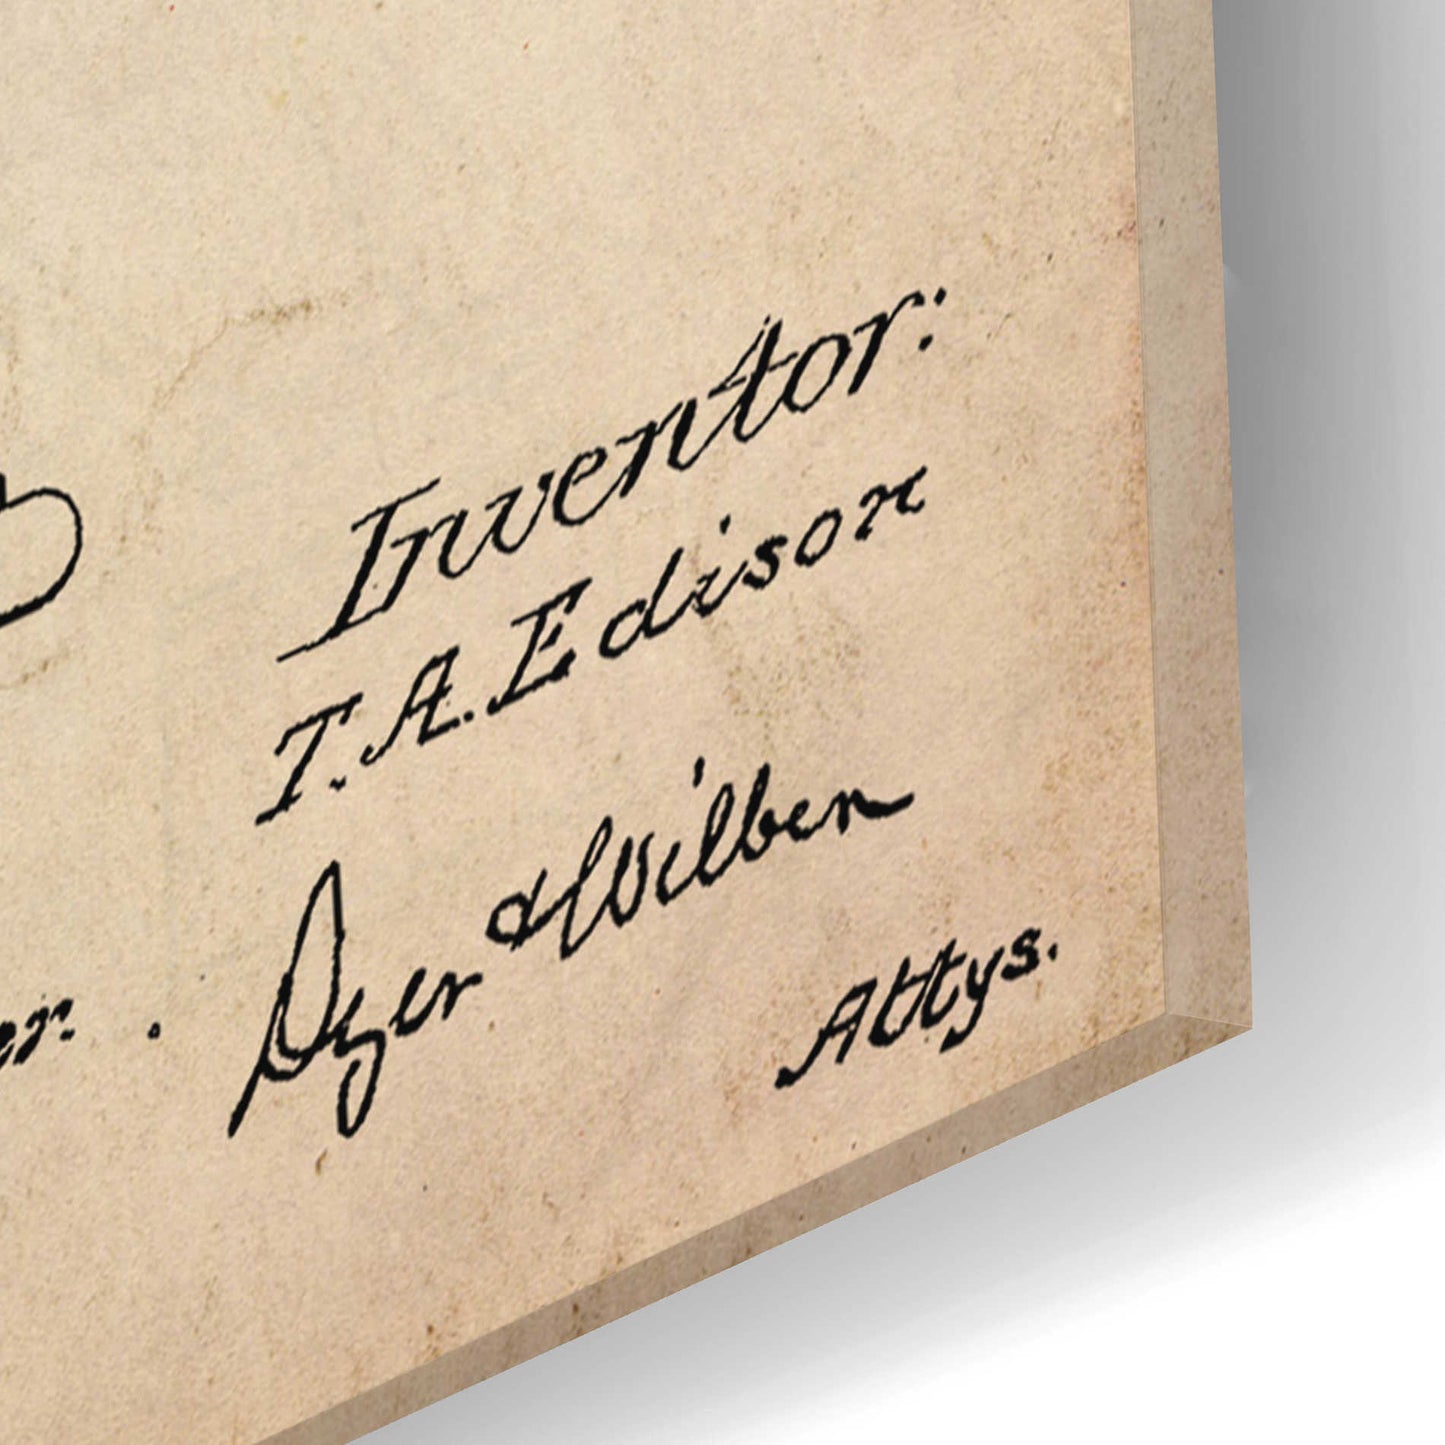 Inventor:
T. A. Edison
Dyer & Wilben
Attys.
er.